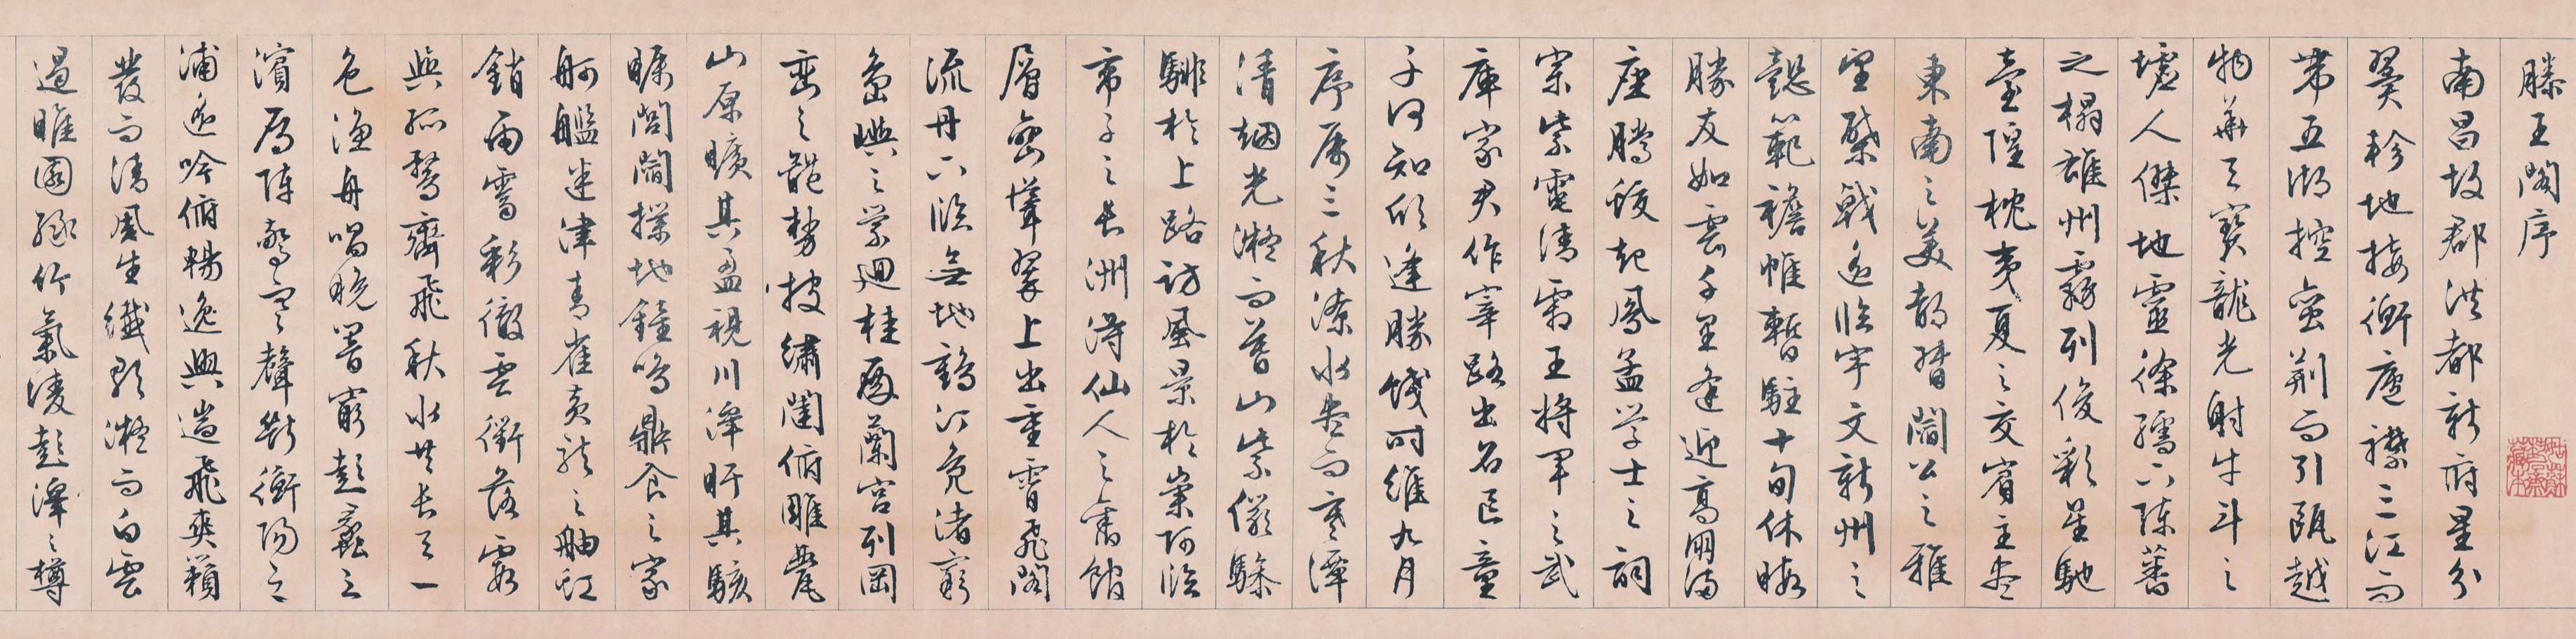 滕王閣序
南昌故郡洪都新府星分
翼軫地接衡廬襟三江而
帶五湖控蠻荊而引甌越
物華天寶龍光射牛斗之
墟人傑地靈徐孺下陳蕃
之榻雄州霧列俊彩星馳
臺隍枕夷夏之交賓主盡
東南之美都督閻公之雅
望棨戟遙臨宇文新州之
懿範襜帷暫駐十旬休暇
勝友如雲千里逢迎高朋滿
座騰蛟起鳳孟學士之詞
宗紫電清霜王將軍之武
庫家君作宰路出名區童
子何知欣逢勝餞時維九月
序屬三秋潦水盡而寒潭
清烟光凝而暮山紫儼驂
騑於上路訪風景於崇阿臨
帝子之長洲得仙人之舊館
層巒聳翠上出重霄飛閣
流丹下臨無地鶴汀鳧渚窮
島嶼之縈迴桂殿蘭宮列岡
巒之體勢披繡闥俯雕甍
山原曠其盈視川澤盱其駭
矚閭閻撲地鐘鳴鼎食之家
舸艦迷津青雀黃龍之舳虹
銷雨霽彩徹雲衢落霞
與孤鶩齊飛秋水共長天一
色漁舟唱晚響窮彭蠡之
濱雁陣驚寒聲斷衡陽之
浦遙吟俯暢逸興遄飛爽籟
發而清風生纖歌凝而白雲
遏睢園綠竹氣凌彭澤之樽